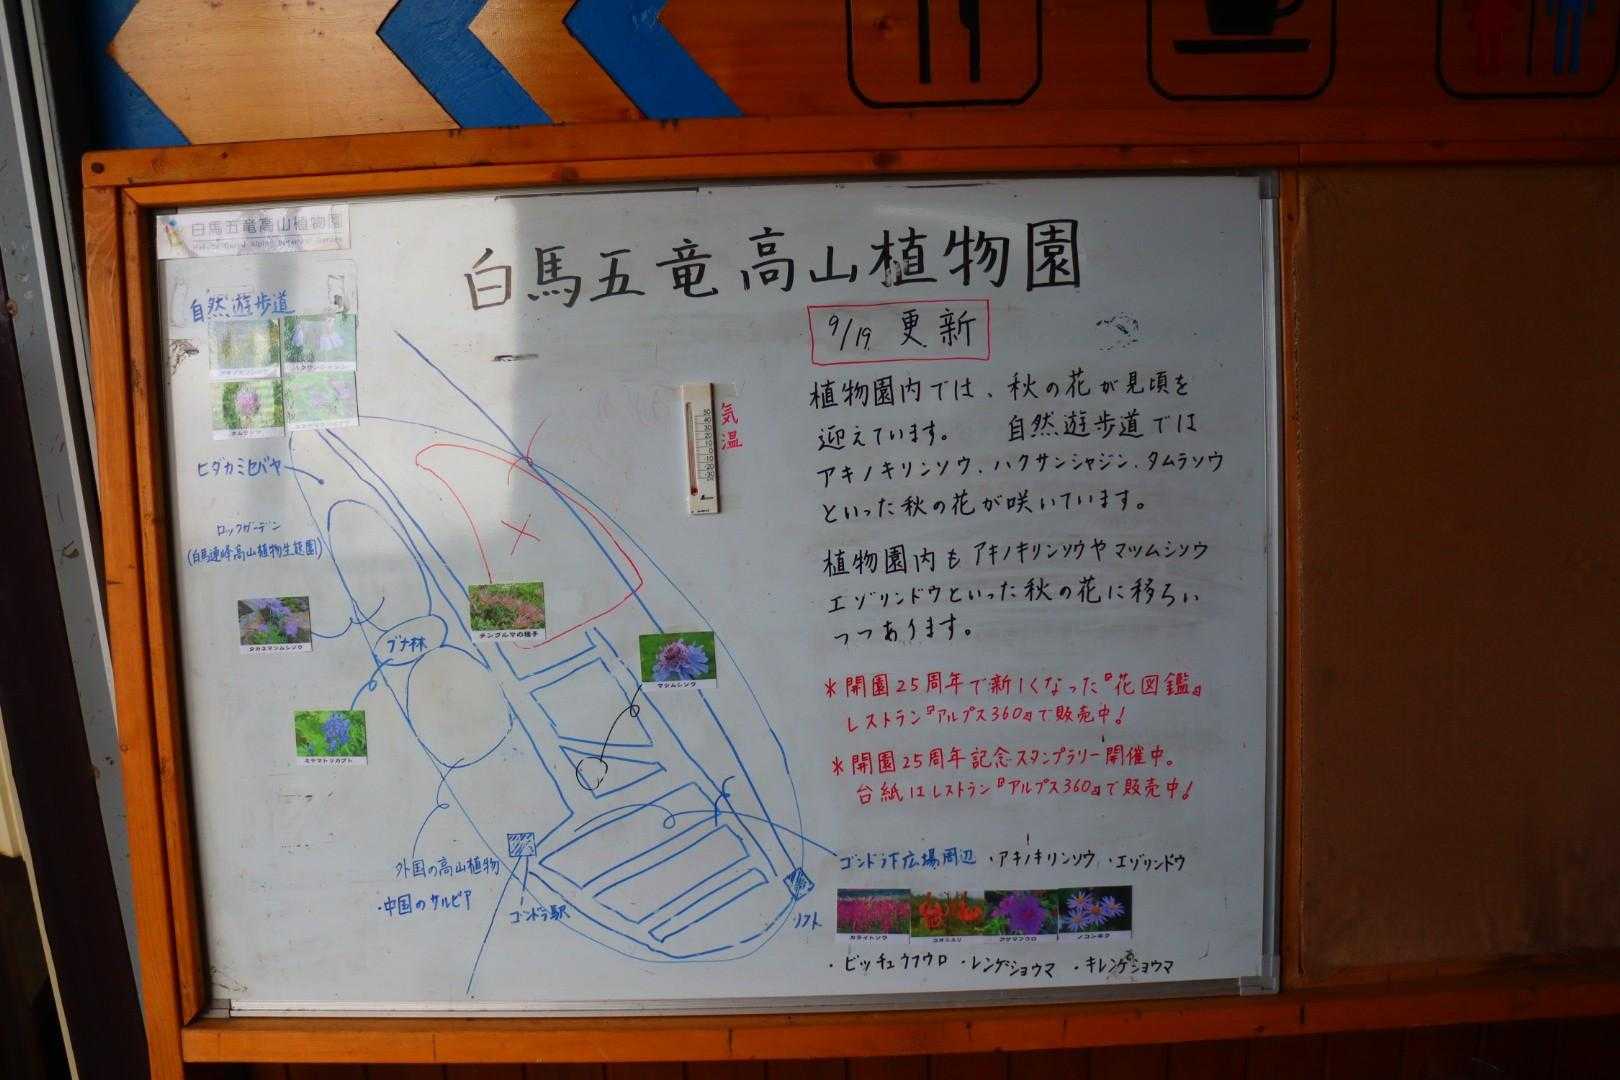 白馬五竜高山植物園
Hakuba Goryu Alpine Botanical Garden
白馬五竜高山植物園
9/19 更新
自然遊歩道
アキノキリンソウ
ハクサンシャジン
タムラソウ
ヒダカミセバヤ
ロックガーデン
(白馬連峰高山植物生態園)
タカネマツムシソウ
ブナ林
ミヤマトリカブト
チングルマの様子
マツムシソウ
気温
植物園内では、秋の花が見頃を
迎えています。 自然遊歩道では
アキノキリンソウ、ハクサンシャジン、タムラソウ
といった秋の花が咲いています。
植物園内もアキノキリンソウやマツムシソウ
エゾリンドウといった秋の花に移らい
つつあります。
*開園25周年で新しくなった『花図鑑』
レストラン『アルプス360』で販売中!
*開園25周年記念スタンプラリー開催中。
台紙はレストラン『アルプス360』で販売中!
外国の高山植物
・中国のサルビア
ゴンドラ駅
リフト
ゴンドラ下広場周辺 ・アキノキリンソウ ・エゾリンドウ
カライトソウ
コオニユリ
アサマフウロ
ノコンギク
・ビッチュウフウロ ・レンゲショウマ ・キレンゲショウマ